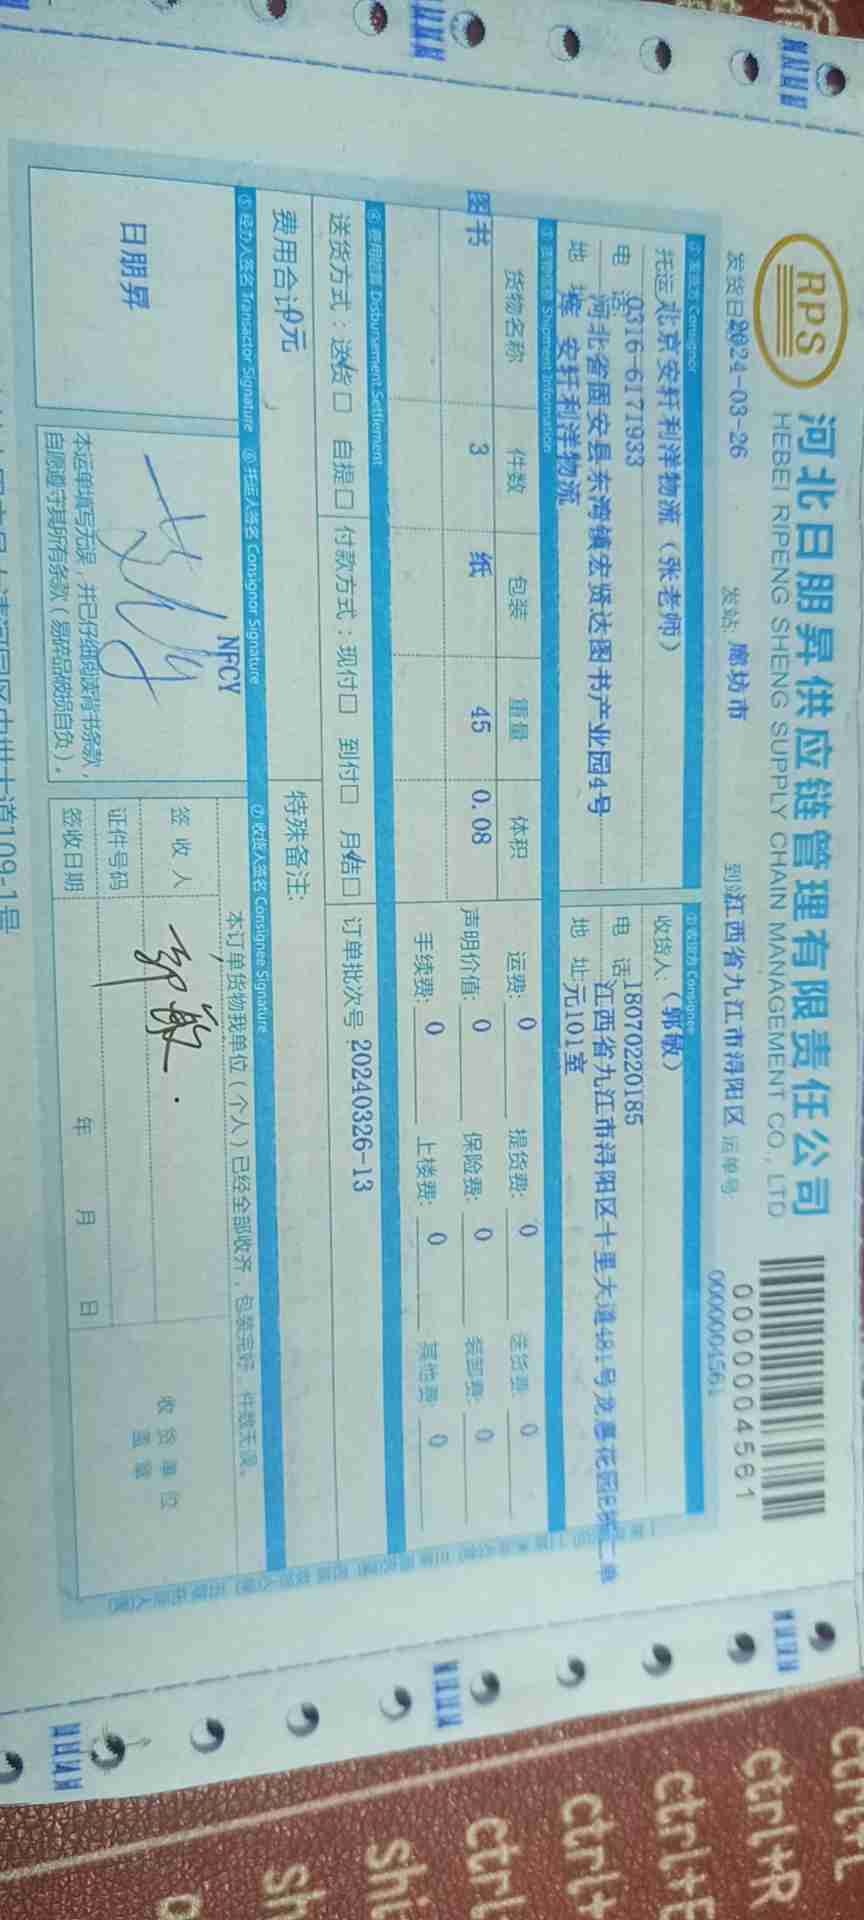 RPS
河北日朋昇供应链管理有限责任公司
HEBEI RIPENG SHENG SUPPLY CHAIN MANAGEMENT CO., LTD
0000004561
发货日 2024-03-26 发站: 廊坊市 到站 江西省九江市浔阳区 运单号: 0000004561
① 发货方 Consignor ② 收货方 Consignee
托运人 北京安轩利洋物流（张老师） 收货人: （郭敏）
电 话 0316-6171933 电 话 18070220185
河北省固安县东湾镇宏贤达图书产业园4号 江西省九江市浔阳区十里大道481号龙 花园 二单
地 址 库 安轩利洋物流 地 址: 元101室
Shipment Information
货物名称 件数 包装 重量 体积 运费: 0 提货费: 0 送货费: 0
图书 3 纸 45 0.08 声明价值: 0 保险费: 0 装卸费: 0
手续费: 0 上楼费: 0 其他费: 0
④ 费用结算 Disbursement Settlement
送货方式: 送货□ 自提□ 付款方式: 现付□ 到付□ 月结□ 订单批次号: 20240326-13
费用合计 0元 特殊备注:
⑤ 经办人签名 Transactor Signature ⑥ 托运人签名 Consignor Signature ⑦ 收货人签名 Consignee Signature
NFCY
本订单货物我单位（个人）已经全部收齐，包装完好，件数无误。
日朋昇
签 收 人 郭敏.
证件号码
签收日期 年 月 日
收 货 单 位
盖 章
本运单填写无误，并已仔细阅读背书条款，
自愿遵守其所有条款（易碎品破损自负）。
道109-1号
ctrl+R
ctrl+